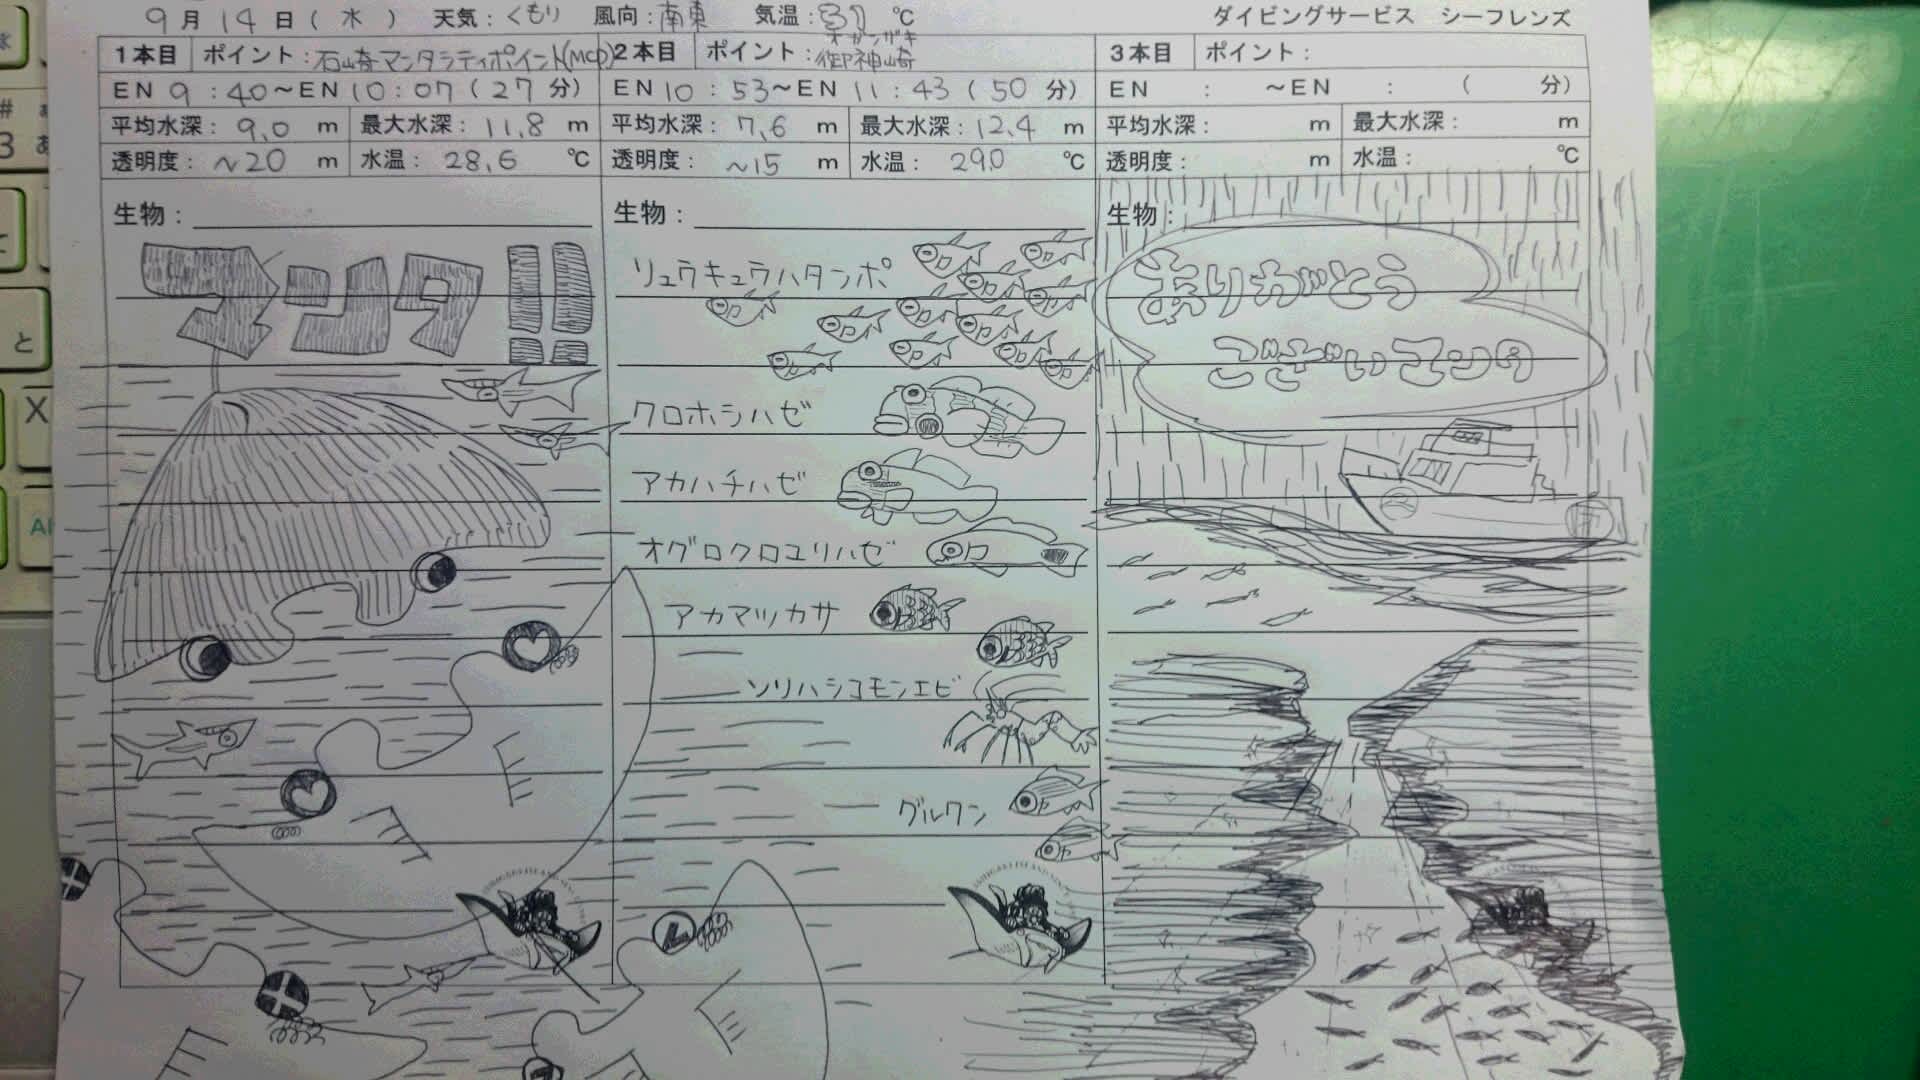 9月14日(水) 天気:くもり 風向:南東 気温:31℃ ダイビングサービス シーフレンズ
1本目 ポイント:石崎マンタシティポイント(MCP)
EN 9:40～EN 10:07(27分)
平均水深:9.0m 最大水深:11.8m
透明度:~20m 水温:28.6℃
生物:
マンタ!!
2本目 ポイント:御神崎
オカンザキ
EN 10:53～EN 11:43(50分)
平均水深:7.6m 最大水深:12.4m
透明度:~15m 水温:29.0℃
生物:
リュウキュウハタンポ
クロホシハゼ
アカハチハゼ
オグロクロユリハゼ
アカマツカサ
ソリハシコモンエビ
グルクン
3本目 ポイント:
EN : ～EN : ( 分)
平均水深: m 最大水深: m
透明度: m 水温: ℃
生物:
ありがとう
ございマンタ